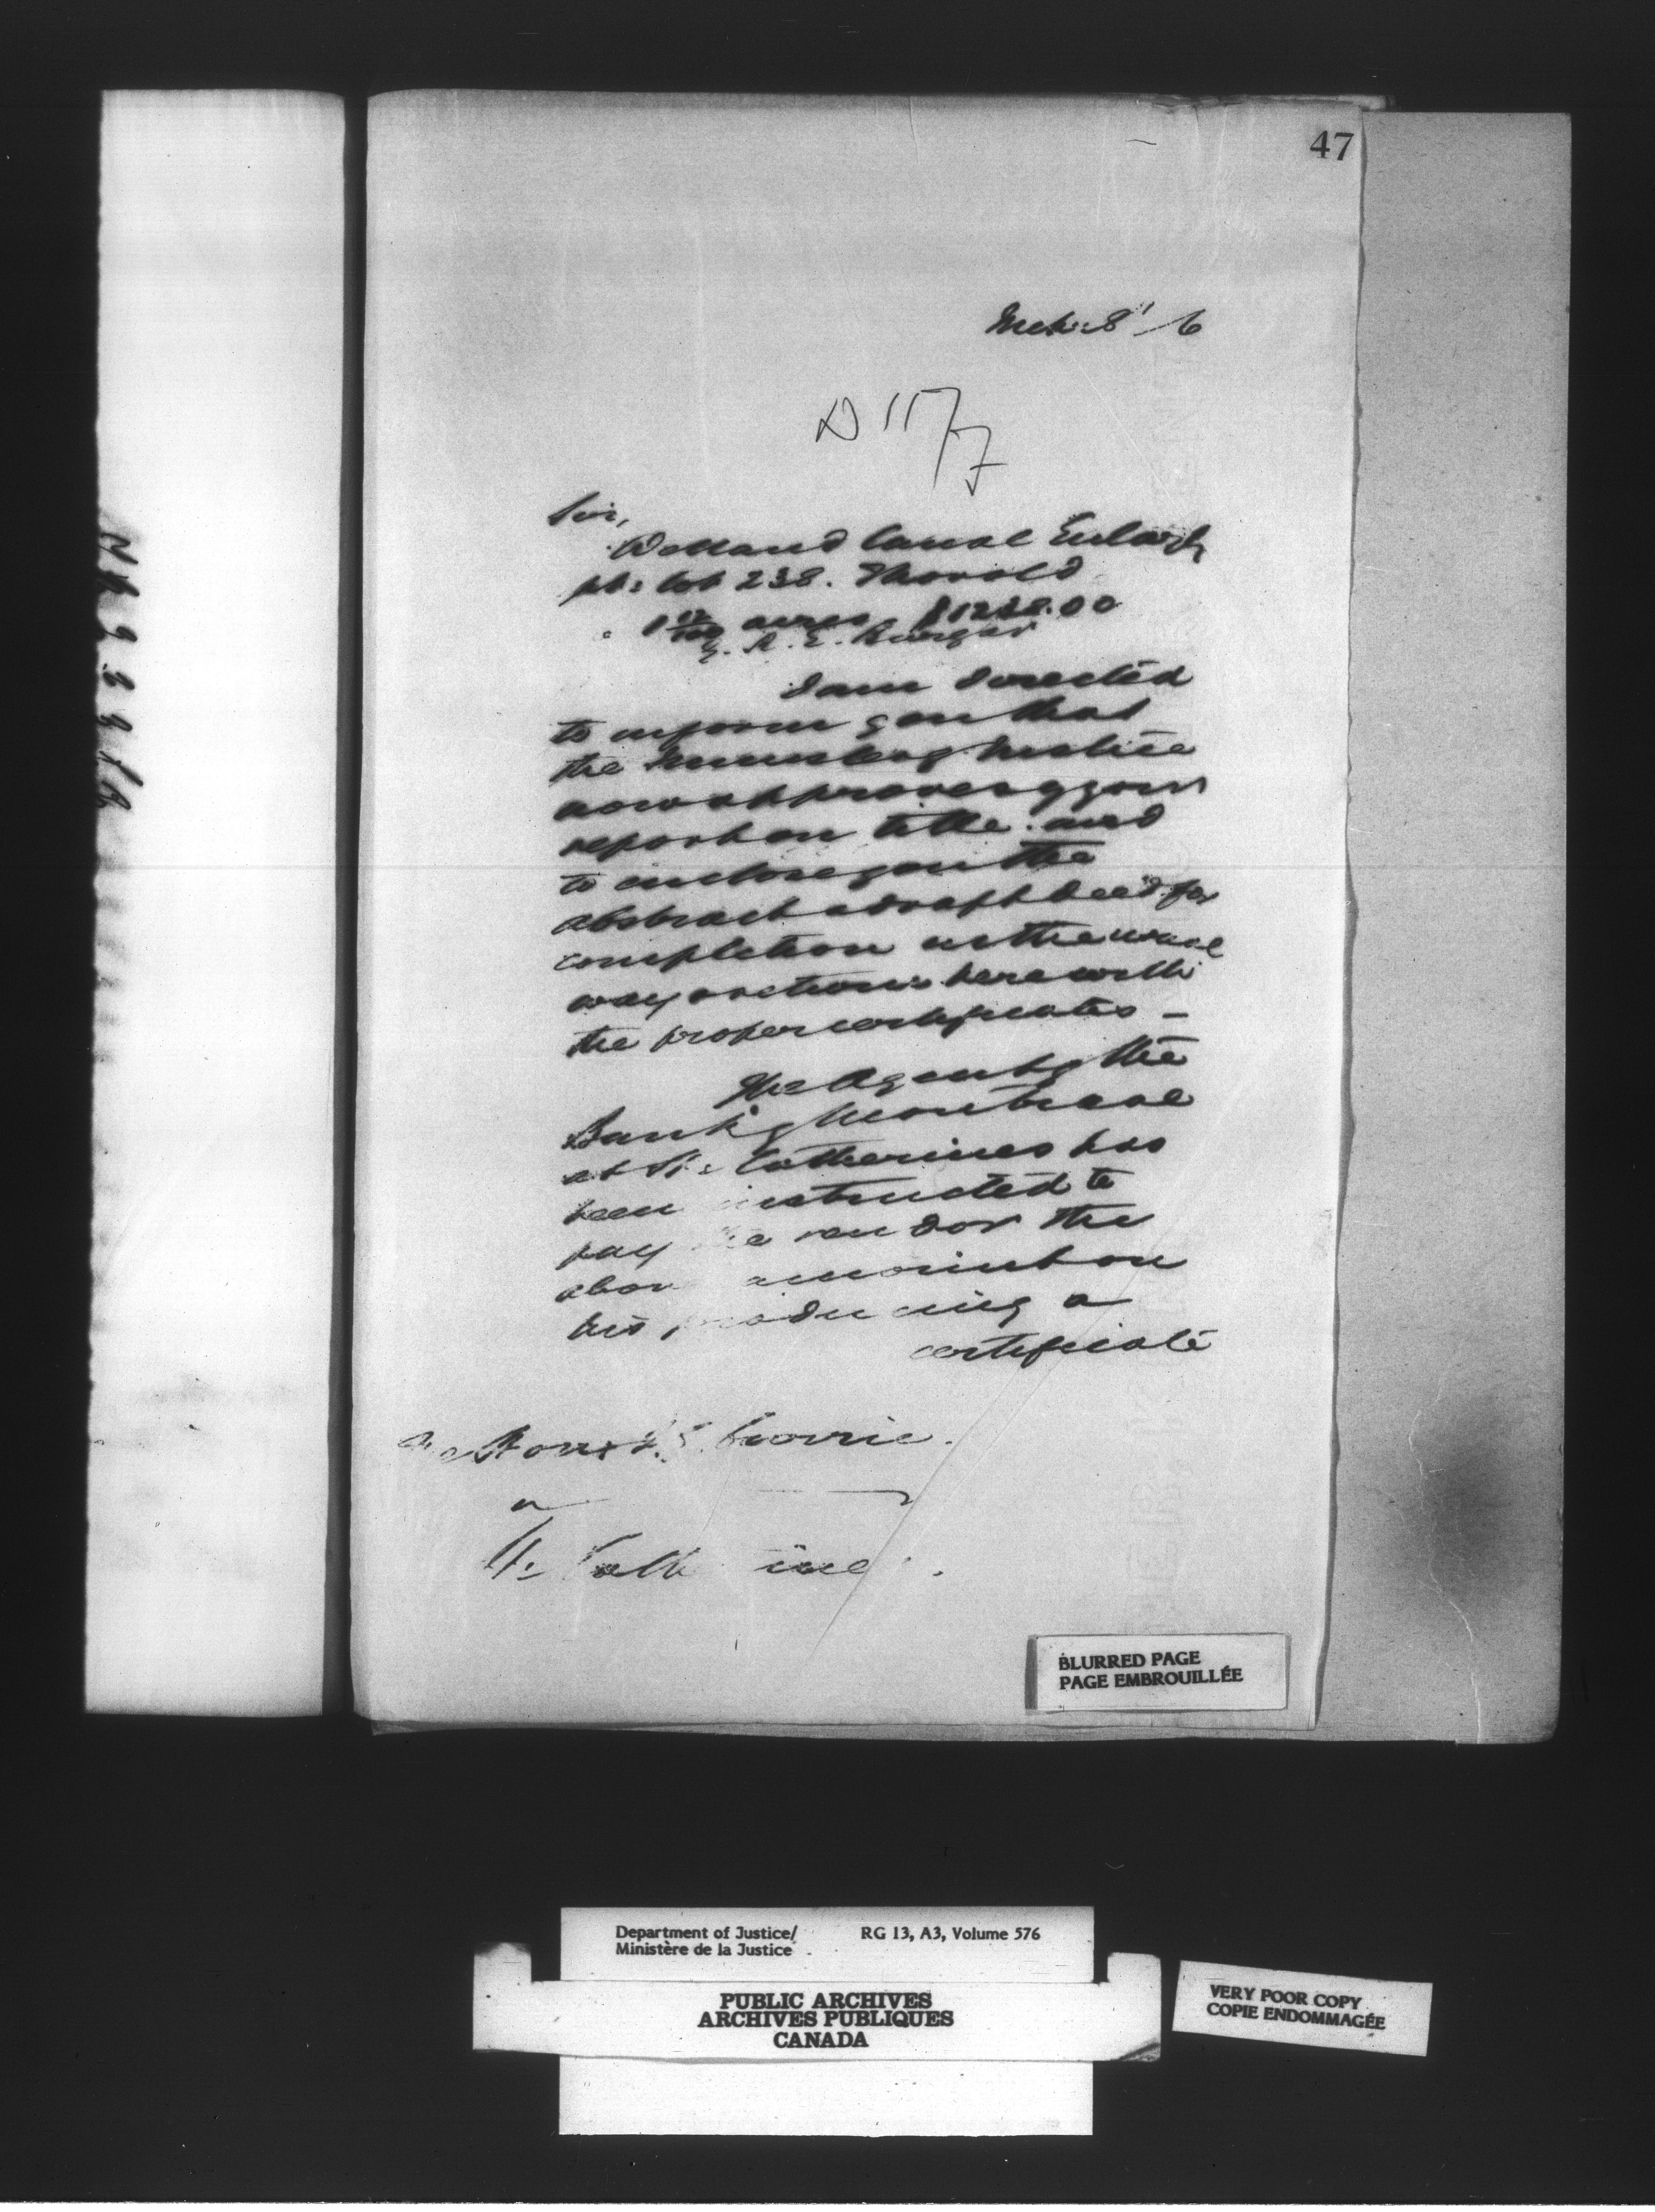 47
Mch: 8' /6
Sir,
Welland Canal Enlargt
pt: lot 238. Thorold
acres $12 8.00
I am directed
to inform you that
the Minister of Justice
now approves of your
report on title and
to enclose you the
abstract & draft deed for
completion in the usual
way & return here with
the proper certificates —
The Agent of the
Bank of Montreal
at St: Catherines has
been instructed to
pay the vendor the
above amount on
his producing a
certificate
The Honr J. G. Currie.
St: Cath ines
BLURRED PAGE
PAGE EMBROUILLÉE
Department of Justice/ RG 13, A3, Volume 576
Ministère de la Justice
PUBLIC ARCHIVES
ARCHIVES PUBLIQUES
CANADA
VERY POOR COPY
COPIE ENDOMMAGÉE